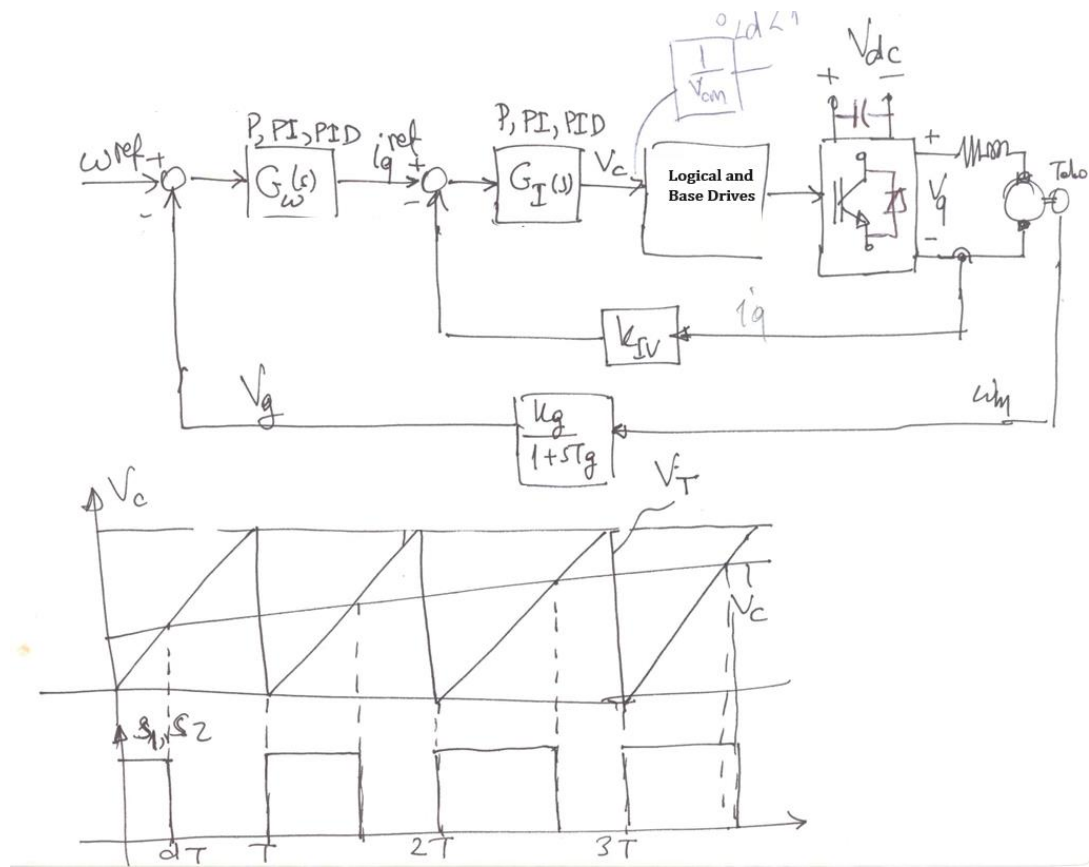 0<d<1
1
Vcm
Vdc
+ −
P, PI, PID
P, PI, PID
ω ref +
-
G_ω(s)
i_a ref +
-
G_I(s)
Vc
Logical and
Base Drives
+
Va
-
Tacho
K_IV
ia
Vg
Kg
1+STg
ωm
Vc
V_T
Vc
S1, S2
dT T 2T 3T